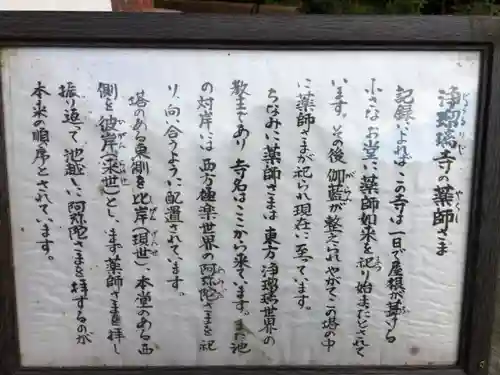 浄瑠璃寺の薬師さま
じょうるりじ
やくし
記録によればこの寺は一日で屋根が葺ける
小さなお堂に薬師如来を祀り始まったとされて
います。その後伽藍が整えられやがてこの塔の中
に薬師さまが祀られ現在に至っています。
ちなみに薬師さまは東方浄瑠璃世界の
教主であり寺名はここから来ています。また池
の対岸には西方極楽世界の阿弥陀さまを祀
り、向い合うように配置されています。
塔のある東側を此岸(現世)、本堂のある西
側を彼岸(来世)とし、まず薬師さまを拝し
振り返って、池越しに阿弥陀さまを拝するのが
本来の順序とされています。